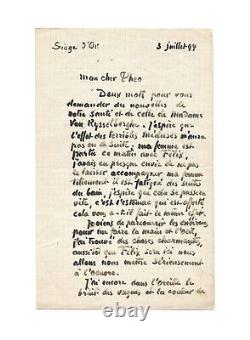 Singe d'Or 3 juillet 94
mon cher Theo
Deux mots pour vous
demander des nouvelles de
votre santé et de celle de Madame
Van Rysselberghe. J'espère que
l'effet des terribles méduses n'aura
pas eu de suite, ma femme est
partie ce matin avec Félix,
j'avais eu presque envie de ne pas
le laisser accompagner ma femme
tellement il est fatigué des suites
du bain, j'espère que cela se passera
vite, c'est l'estomac qui est affecté
cela vous a-t-il fait le même effet.
Je viens de parcourir les environs
pour me faire la main et l'œil,
j'ai trouvé des choses charmantes,
aussitôt que Félix sera ici nous
allons nous mettre sérieusement
à l'œuvre.
J'ai encore dans l'oreille le
bruit des vagues et la couleur de
ebay